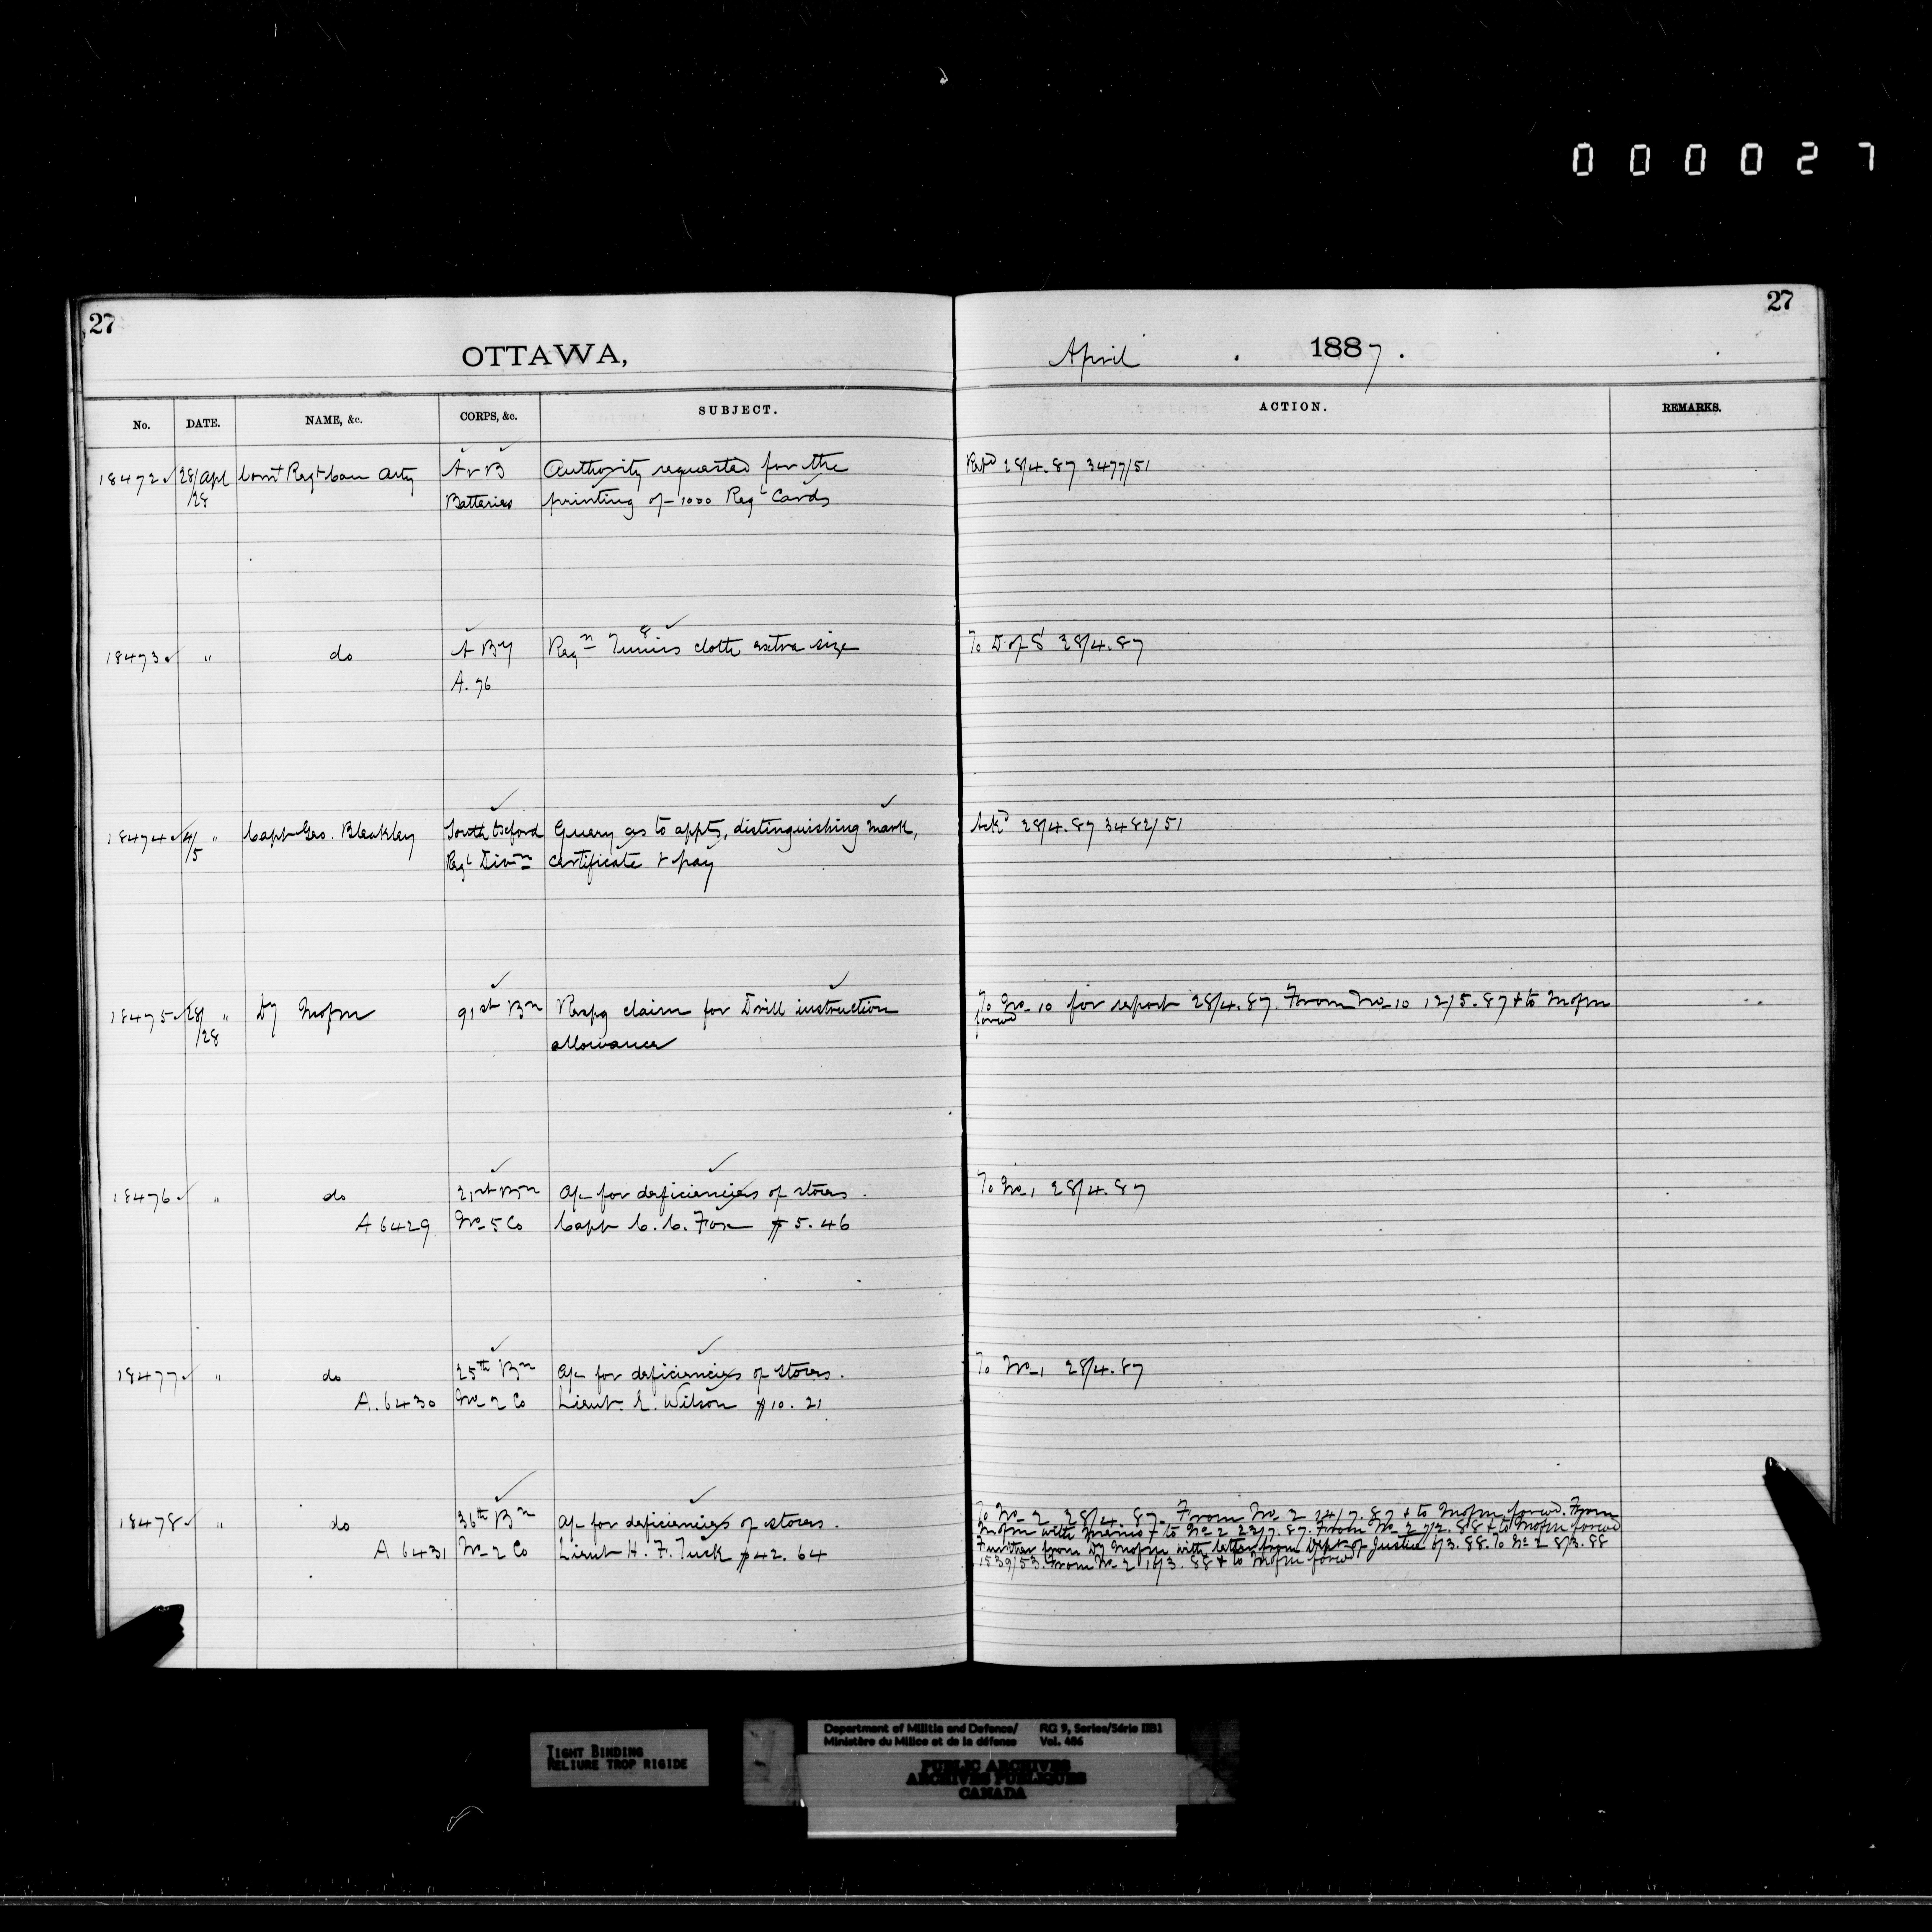 000027
27
27
OTTAWA,
April 1887.
No. DATE. NAME, &c. CORPS, &c. SUBJECT. ACTION. REMARKS.
18472 28/Apl Comt Regt Can Arty A & B Authority requested for the Repd 28/4.87 3477/51
/28 Batteries printing of 1000 Regl Cards
18473 " do A By Reqn Tunics cloth extra size To D of S 28/4.87
8
A. 76
18474 4/5 " Capt Geo. Bleakley South Oxford Query as to appts, distinguishing mark, Ackd 28/4.87 3482/51
Regl Divn certificate & pay
18475 28/ " Dy Mofm 91st Bn Respg claim for Drill instruction To No 10 for report 28/4.87. From No 10 12/5.87 & to Mofm
/28 allowance forwd
18476 " do 21st Bn A/c for deficiencies of stores. To No 1 28/4.87
A 6429 No 5 Co Capt C. C. Fox $5.46
18477 " do 25th Bn A/c for deficiencies of stores. To No 1 28/4.87
A. 6430 No 2 Co Lieut. E. Wilson $10.21
18478 " do 36th Bn A/c for deficiencies of stores. To No 2 28/4.87. From No 2 14/7.87 & to Mofm forwd. From
Mofm with memo & to No 2 22/7.87. From No 2 7/2.88 & to Mofm forwd
A 6431 No 2 Co Lieut H. F. Tuck $42.64 Further from Dy Mofm with letter from Dept of Justice 6/3.88. To No 2 8/3.88
1539/53. From No 2 16/3.88 & to Mofm forwd
TIGHT BINDING
RELIURE TROP RIGIDE
Department of Militia and Defence/ RG 9, Series/Série IIB1
Ministère du Milice et de la défense Vol. 486
PUBLIC ARCHIVES
ARCHIVES PUBLIQUES
CANADA